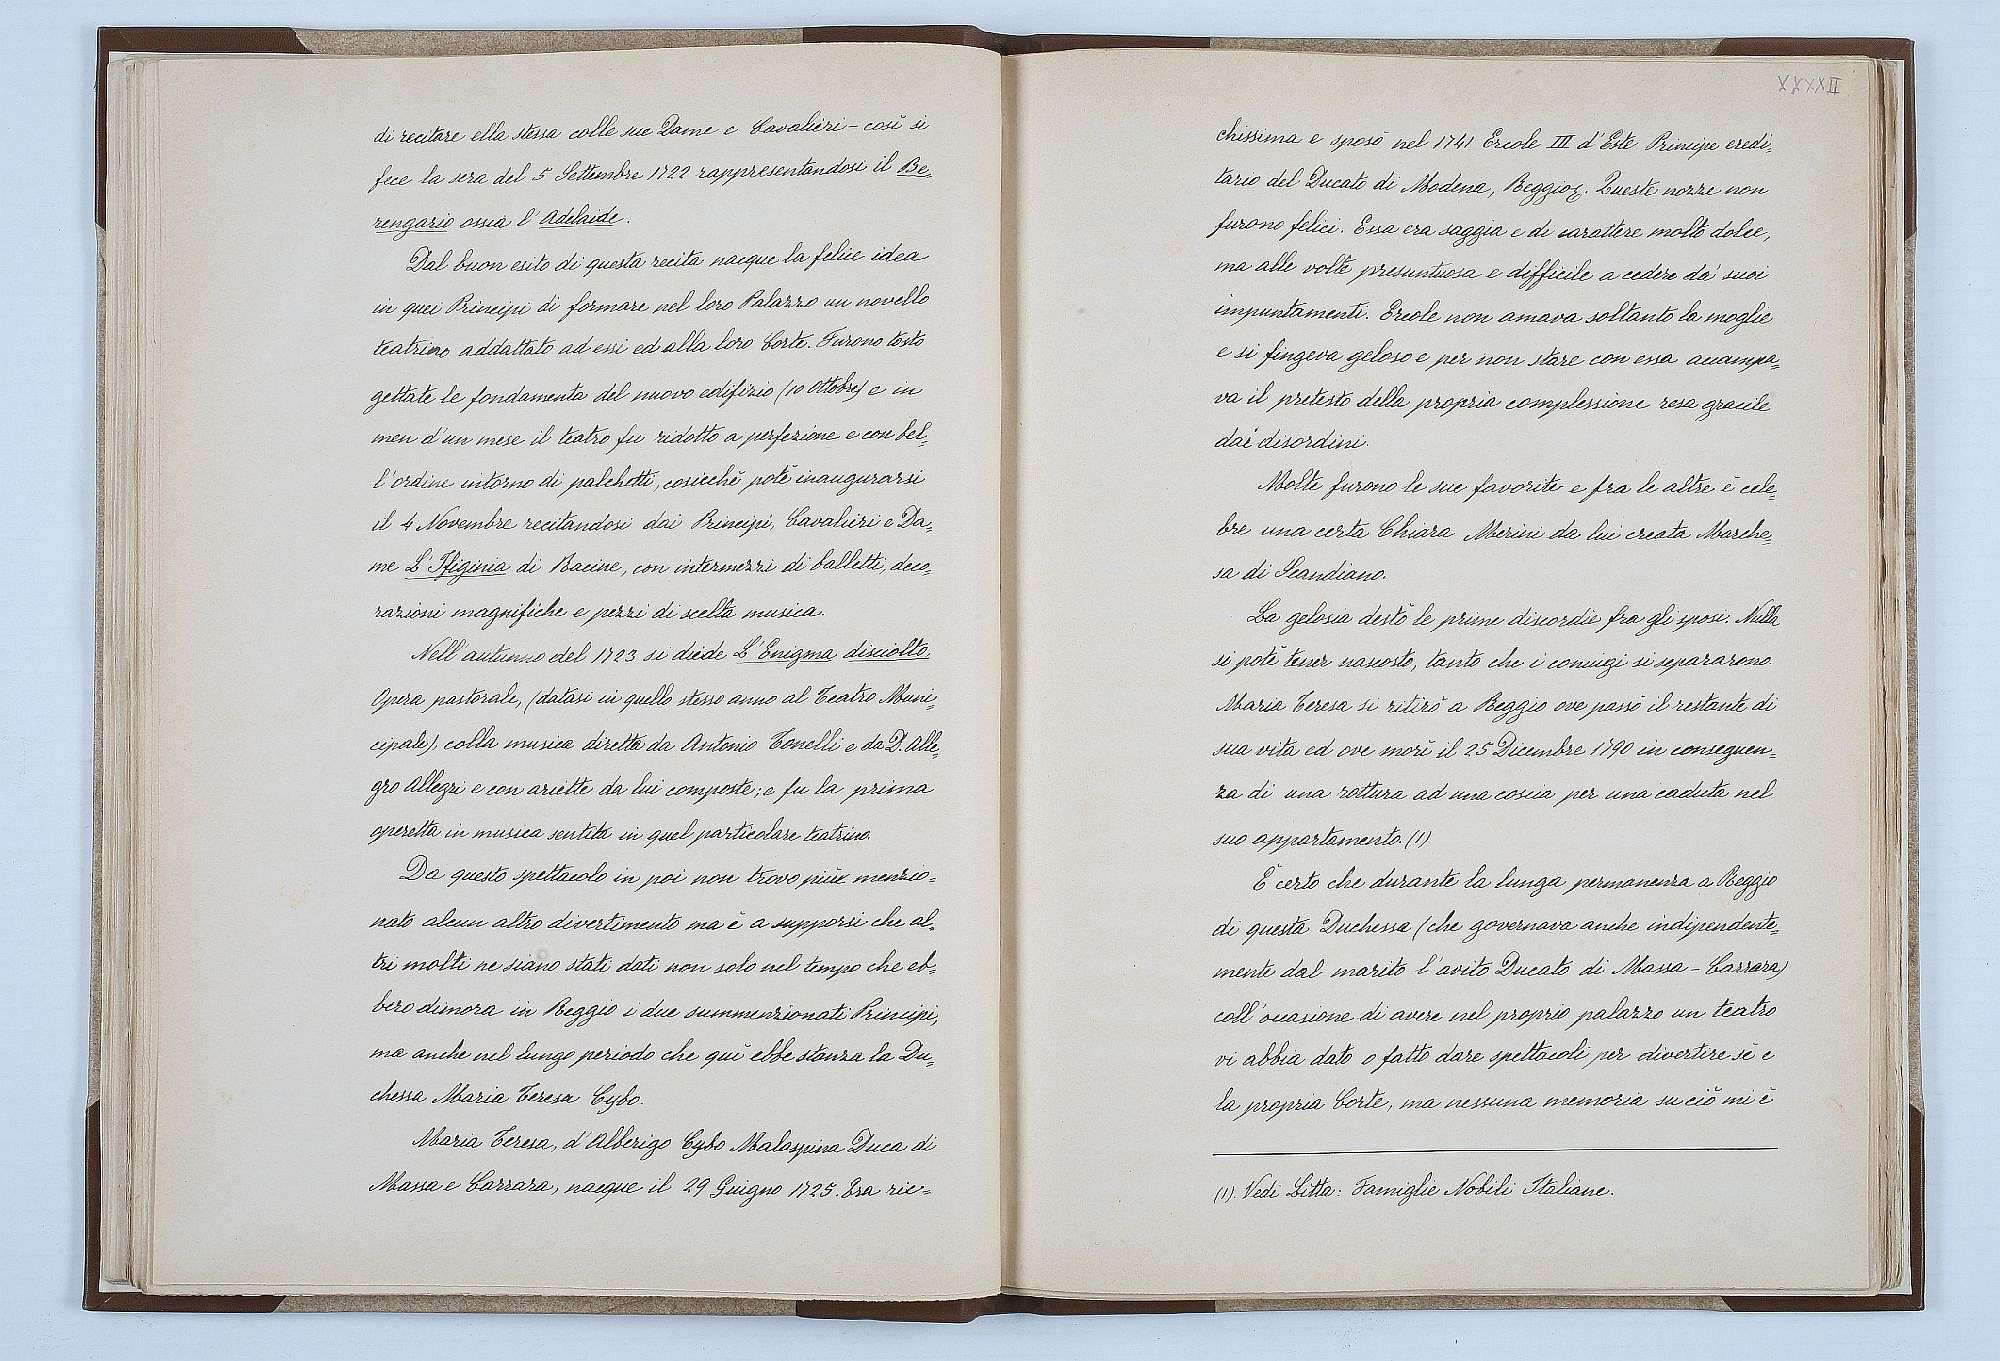 di recitare ella stessa colle sue Dame e Cavalieri – così si
fece la sera del 5 Settembre 1722 rappresentandosi il Be-
rengario ossia l'Adelaide.
Dal buon esito di questa recita nacque la felice idea
in quei Principi di formare nel loro Palazzo un novello
teatrino addattato ad essi ed alla loro Corte. Furono tosto
gettate le fondamenta del nuovo edifizio (10 Ottobre) e in
men d'un mese il teatro fu ridotto a perfezione e con bel-
l'ordine intorno di palchetti, cosicchè potè inaugurarsi
il 4 Novembre recitandosi dai Principi, Cavalieri e Da-
me L'Ifiginia di Racine, con intermezzi di balletti, deco-
razioni magnifiche e pezzi di scelta musica.
Nell autunno del 1723 si diede L'Enigma disciolto.
Opera pastorale, (datasi in quello stesso anno al Teatro Muni-
cipale), colla musica diretta da Antonio Tonelli e da D. Alle-
gro Allegri e con ariette da lui composte; e fu la prima
operetta in musica sentita in quel particolare teatrino.
Da questo spettacolo in poi non trovo più menzio-
nato alcun altro divertimento ma è a supporsi che al-
tri molti ne siano stati dati non solo nel tempo che eb-
bero dimora in Reggio i due summenzionati Principi,
ma anche nel lungo periodo che quì ebbe stanza la Du-
chessa Maria Teresa Cybo.
Maria Teresa, d'Alberigo Cybo Malaspina Duca di
Massa e Carrara, nacque il 29 Guigno 1725. Era ric-
XXXXII
chissima e sposò nel 1741 Ercole III d'Este Principe eredi-
tario del Ducato di Modena, Reggio &. Queste nozze non
furono felici. Essa era saggia e di carattere molto dolce,
ma alle volte presuntuosa e difficile a cedere da' suoi
impuntamenti. Ercole non amava soltanto la moglie
e si fingeva geloso e per non stare con essa accampa-
va il pretesto della propria complessione resa gracile
dai disordini.
Molte furono le sue favorite e fra le altre è cele-
bre una certa Chiara Merini da lui creata Marche-
sa di Scandiano.
La gelosia destò le prime discordie fra gli sposi. Nulla
si potè tener nascosto, tanto che i coniugi si separarono.
Maria Teresa si ritirò a Reggio ove passò il restante di
sua vita ed ove morì il 25 Dicembre 1790 in conseguen-
za di una rottura ad una coscia per una caduta nel
suo appartamento. (1)
È certo che durante la lunga permanenza a Reggio
di questa Duchessa (che governava anche indipendente-
mente dal marito l'avito Ducato di Massa – Carrara)
coll'occasione di avere nel proprio palazzo un teatro
vi abbia dato o fatto dare spettacoli per divertire sè e
la propria Corte, ma nessuna memoria su ciò mi è
(1). Vedi Litta: Famiglie Nobili Italiane.